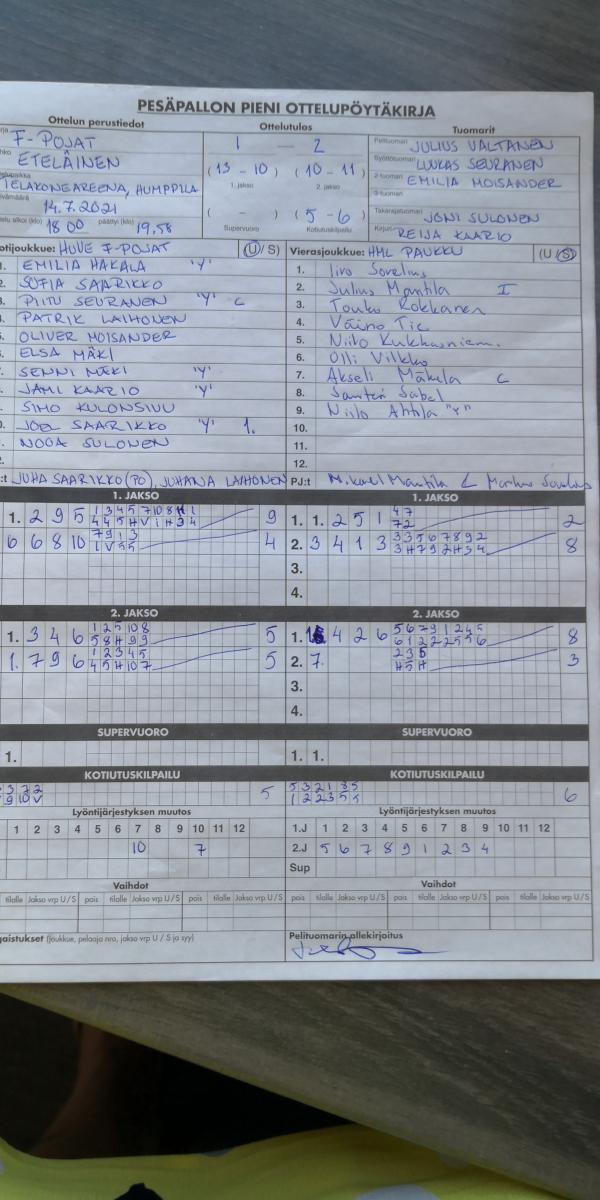 PESÄPALLON PIENI OTTELUPÖYTÄKIRJA
Ottelun perustiedot
Ottelutulos
Tuomarit
F-POJAT
ETELÄINEN
TELAKONEAREENA, HUMPPILA
14.7.2021
18.00 päättyi (klo) 19.58
1 — 2
(13 - 10) (10 - 11)
1. jakso 2. jakso
( - ) (5 - 6)
Supervuoro Kotiutuskilpailu
Pelituomari JULIUS VALTANEN
Syöttötuomari LUUKAS SEURANEN
2-tuomari EMILIA MOISANDER
3-tuomari
Takarajatuomari JONI SULONEN
Kirjuri REIJA KAARIO
otijoukkue: HUVE F-POJAT (U/S)
EMILIA HAKALA "Y"
SOFIA SAARIKKO
PIITU SEURANEN "Y" C
PATRIK LAIHONEN
OLIVER MOISANDER
ELSA MÄKI
SENNI MÄKI "Y"
JAMI KAARIO "Y"
SIMO KULONSIVU
JOEL SAARIKKO "Y" 1.
NOOA SULONEN
JUHA SAARIKKO (PO), JUHANA LAIHONEN
Vierasjoukkue: HML PAUKKU (U/S)
1. Iiro Sorelius
2. Julius Mantila I
3. Touko Rokkanen
4. Väinö Tic
5. Niilo Kukkasniem.
6. Olli Vilkko
7. Akseli Mäkelä C
8. Santeri Sabel
9. Niilo Ahtila "Y"
10.
11.
12.
PJ:t Mikael Mantila & Markus Sorelius
1. JAKSO
1. 2 9 5 1 3 4 5 7 10 8 H 1 9
4 4 5 H V 1 H 3 4
6 6 8 10 7 9 1 3 4
1 V 5 5
1. JAKSO
1. 1. 2 5 1 4 7 2
7 2
2. 3 4 1 3 3 3 5 6 7 8 9 2 8
3 H 7 9 2 H 3 4
3.
4.
2. JAKSO
1. 3 4 6 1 2 5 10 8 5
5 8 H 9 9
1. 7 9 6 1 2 3 4 5 5
4 5 H 10 7
2. JAKSO
1. 4 2 6 5 6 7 9 1 2 4 5 8
6 1 2 2 2 5 5 6
2. 7. 2 3 5 3
H 5 H
3.
4.
SUPERVUORO
1.
SUPERVUORO
1. 1.
KOTIUTUSKILPAILU
3 7 2 5
9 10 V
KOTIUTUSKILPAILU
5 3 2 1 8 5 6
1 2 2 3 5 5
Lyöntijärjestyksen muutos
1 2 3 4 5 6 7 8 9 10 11 12
10 7
Lyöntijärjestyksen muutos
1.J 1 2 3 4 5 6 7 8 9 10 11 12
2.J 5 6 7 8 9 1 2 3 4
Sup
Vaihdot
tilalle Jakso vrp U/S pois tilalle Jakso vrp U/S pois tilalle Jakso vrp U/S
Vaihdot
pois tilalle Jakso vrp U/S pois tilalle Jakso vrp U/S
gaistukset (joukkue, pelaaja nro, jakso vrp U / S ja syy)
Pelituomarin allekirjoitus